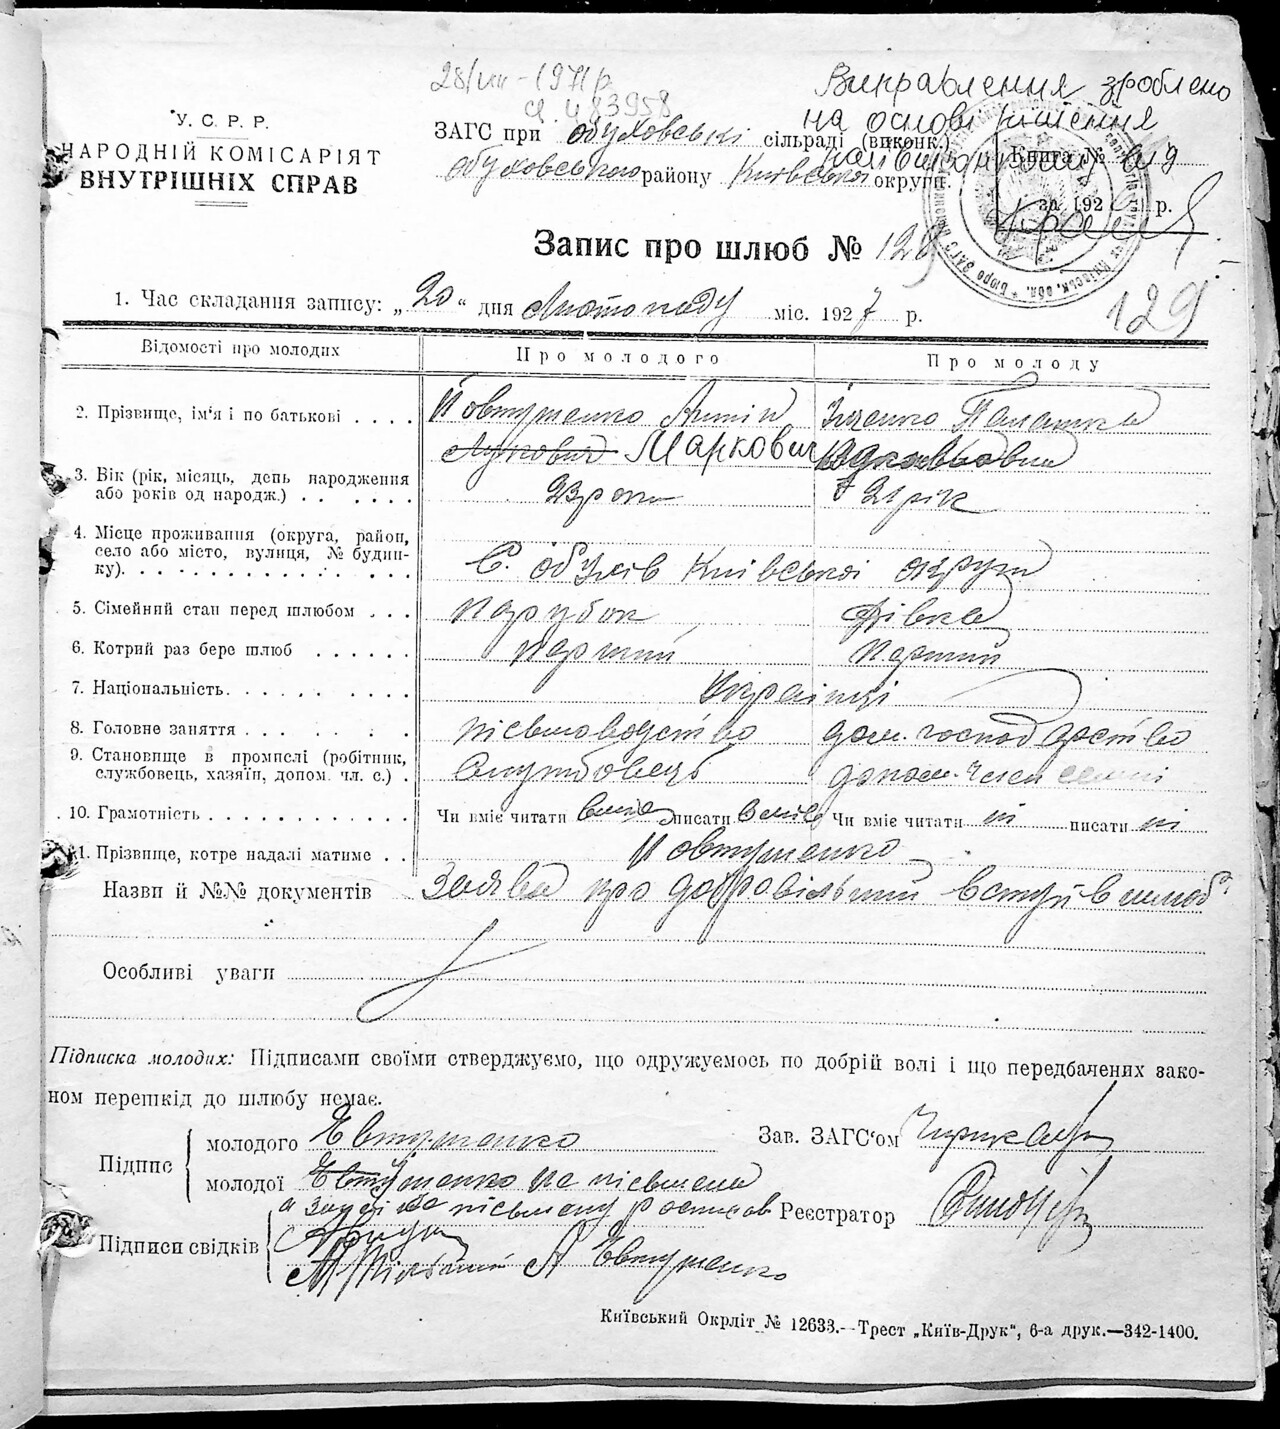 28/VIII-1971р.
Виправлення зроблено
на основі рішення
У. С. Р. Р.
НАРОДНІЙ КОМІСАРІЯТ
ВНУТРІШНІХ СПРАВ
ЗАГС при Обуховські сільраді (виконк.)
Обуховського району Київської округи.
Книга №
за 192 р.
Запис про шлюб № 129
129
1. Час складання запису: „20“ дня Листопаду міс. 1927 р.
Відомості про молодих Про молодого Про молоду
2. Прізвище, ім'я і по батькові . . . . Йовтушенко Антін
Лукович Маркович
3. Вік (рік, місяць, день народження або років од народж.) . . . . . . 23 роки 21 рік
4. Місце проживання (округа, район, село або місто, вулиця, № будинку). С. Обухів Київської округи
5. Сімейний стан перед шлюбом . . . парубок дівка
6. Котрий раз бере шлюб . . . . . . перший перший
7. Національність. . . . . . . . . . Українці
8. Головне заняття . . . . . . . письмоводство дом. господарство
9. Становище в промислі (робітник, службовець, хазяїн, допом. чл. с.) . Службовець допом. член семьї
10. Грамотність . . . . . . . . . . . . Чи вміє читати вміє писати вміє Чи вміє читати ні писати ні
11. Прізвище, котре надалі матиме . . Йовтушенко
Назви й №№ документів Заява про добровільний вступ в шлюб
Особливі уваги
Підписка молодих: Підписами своїми стверджуємо, що одружуємось по добрій волі і що передбачених законом перешкід до шлюбу немає.
Підпис молодого Євтушенко Зав. ЗАГС'ом
молодої Євтушенко не письмена
Реєстратор
Підписи свідків
А Євтушенко
Київський Окрліт № 12633.—Трест „Київ-Друк“, 6-а друк.—342-1400.